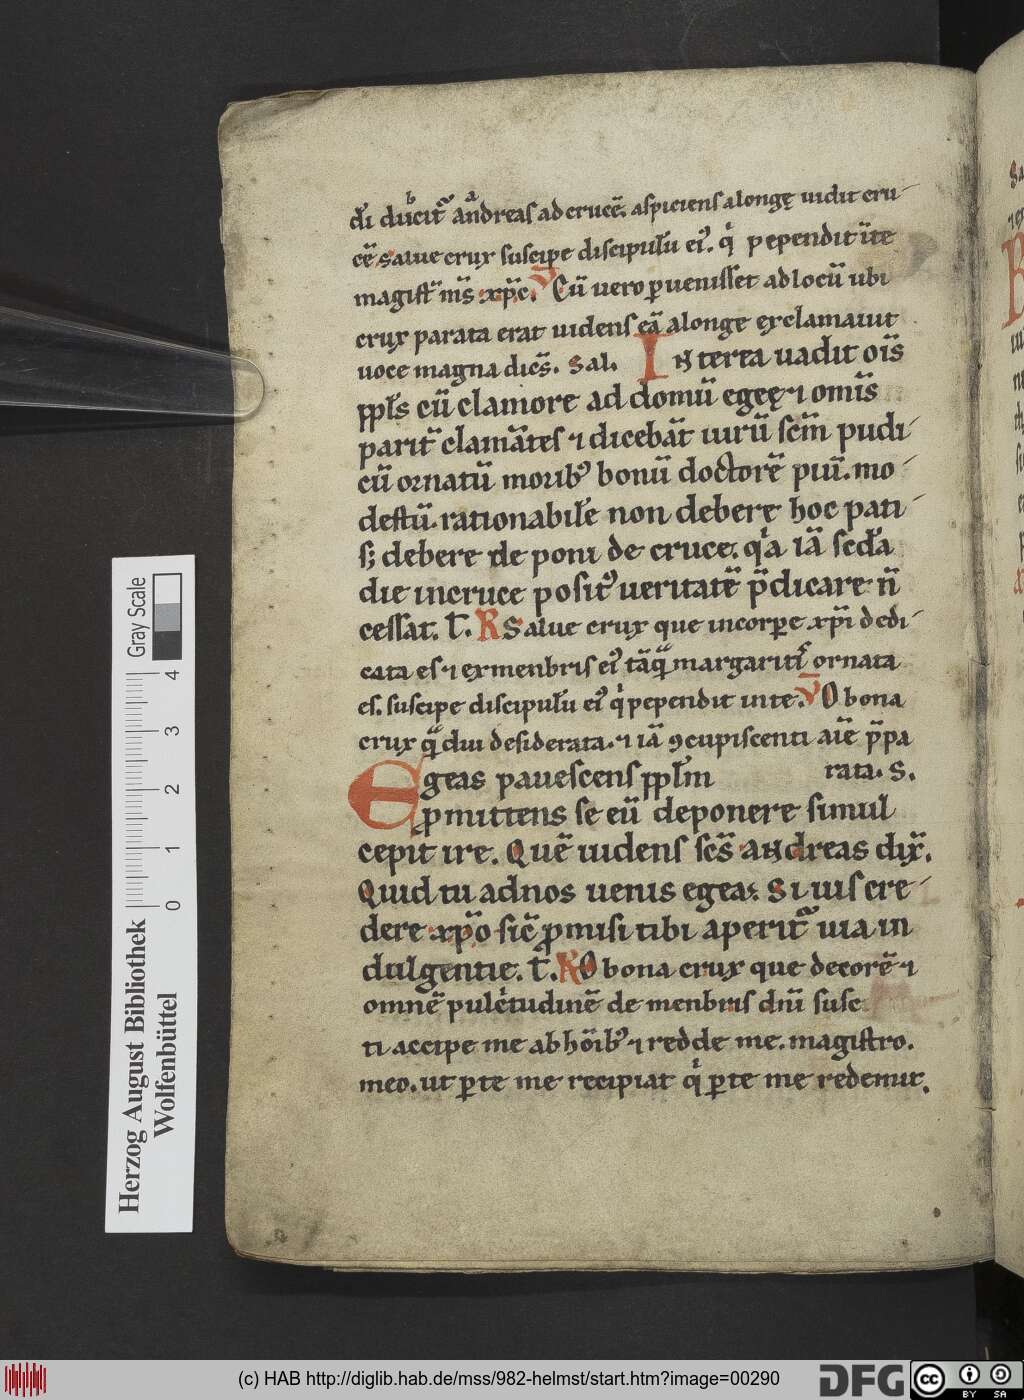 dī ducit᷑ andreas ad crucē. aspiciens a longę uidit cru
cē salue crux suscipe discipulū ei᷒. qͥ pependit ī te
magist̄ m̄s xp̄c. V Cū uero puenisset ad locū ubi
crux parata erat uidens eā a longe exclamauit
uoce magna dicēs. Sal. Interea uadit oīs
ppl̄s cū clamore ad domū egeę ⁊ omīs
parit̄ clamātes ⁊ dicebāt uirū scm̄ pudi
cū ornatū morib᷒ bonū doctorē piū. mo
destū. rationabil̄e non deberę hoc pati
s; debere de poni de cruce. qͥa iā scd̄a
die in cruce posit᷒ ueritatē p̄dicare n̄
cessat. T̄. R Salue crux que in corpe xp̄i dedi
cata es ⁊ ex menbris ei᷒ tāqͣ margaritis ornata
es. suscipe discipul̄u ei᷒ qͥ pependit in te. V O bona
crux qͣ diu desiderata. ⁊ iā ꝯcupiscenti aīe p̄pa
rata. S.
Egeas pauescens ppl̄m
ꝓmittens se eū deponere simul
cepit ire. Quē uidens scs̄ andreas dix̄.
Quid tu ad nos uenis egeas. Si uis cre
dere xp̄o sic̄ ꝓmisi tibi aperit᷑ uia in
dulgentie. T̄. R O bona crux que decorē ⁊
omnē pulcͥtudinē de menbris dn̄i susc
ti accipe me ab hōib᷒ ⁊ redde me. magistro.
meo. ut ꝑ te me recipiat qͥ ꝑ te me redemit.
Gray Scale
0 1 2 3 4
Herzog August Bibliothek
Wolfenbüttel
(c) HAB http://diglib.hab.de/mss/982-helmst/start.htm?image=00290
DFG
cc BY SA